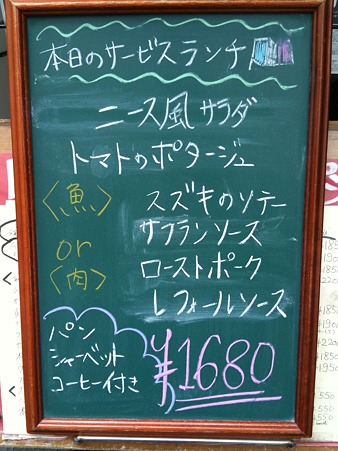 本日のサービスランチ
ニース風サラダ
トマトのポタージュ
〈魚〉 スズキのソテー
サフランソース
or
〈肉〉 ローストポーク
レフォールソース
パン
シャーベット
コーヒー付き
¥1680